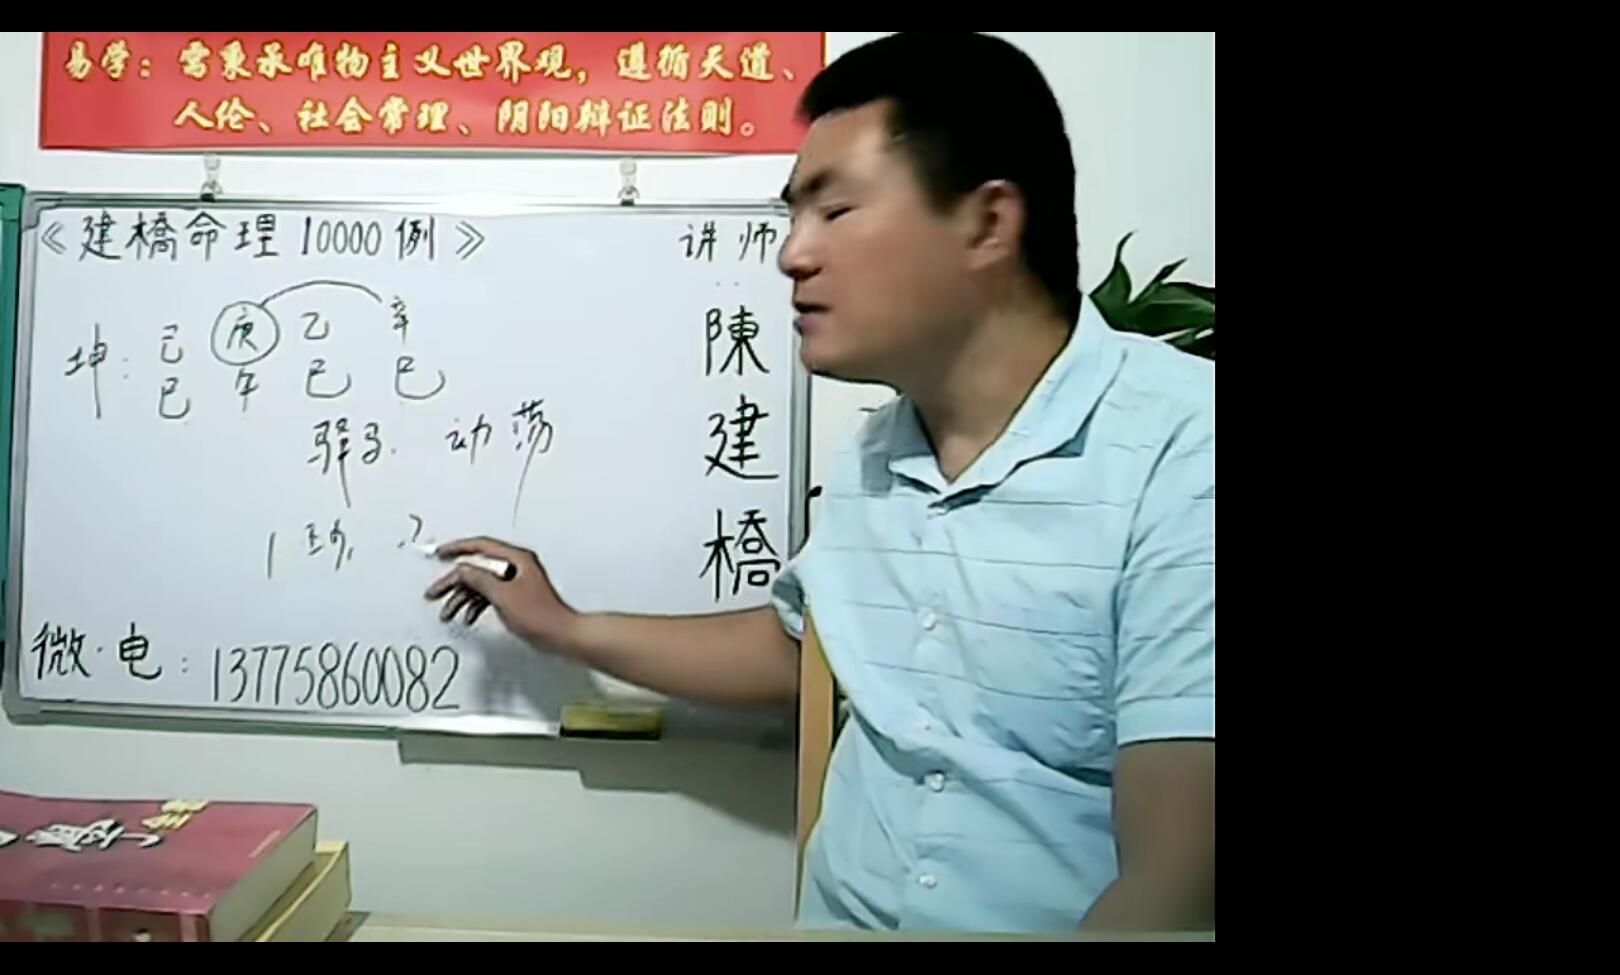 易学：需秉承唯物主义世界观，遵循天道、
人伦、社会常理、阴阳辩证法则。
《建橋命理10000例》
讲师
陳建橋
坤： 己 庚 乙 辛
巳 午 巳 巳
驿马. 动荡
1
微·电：13775860082